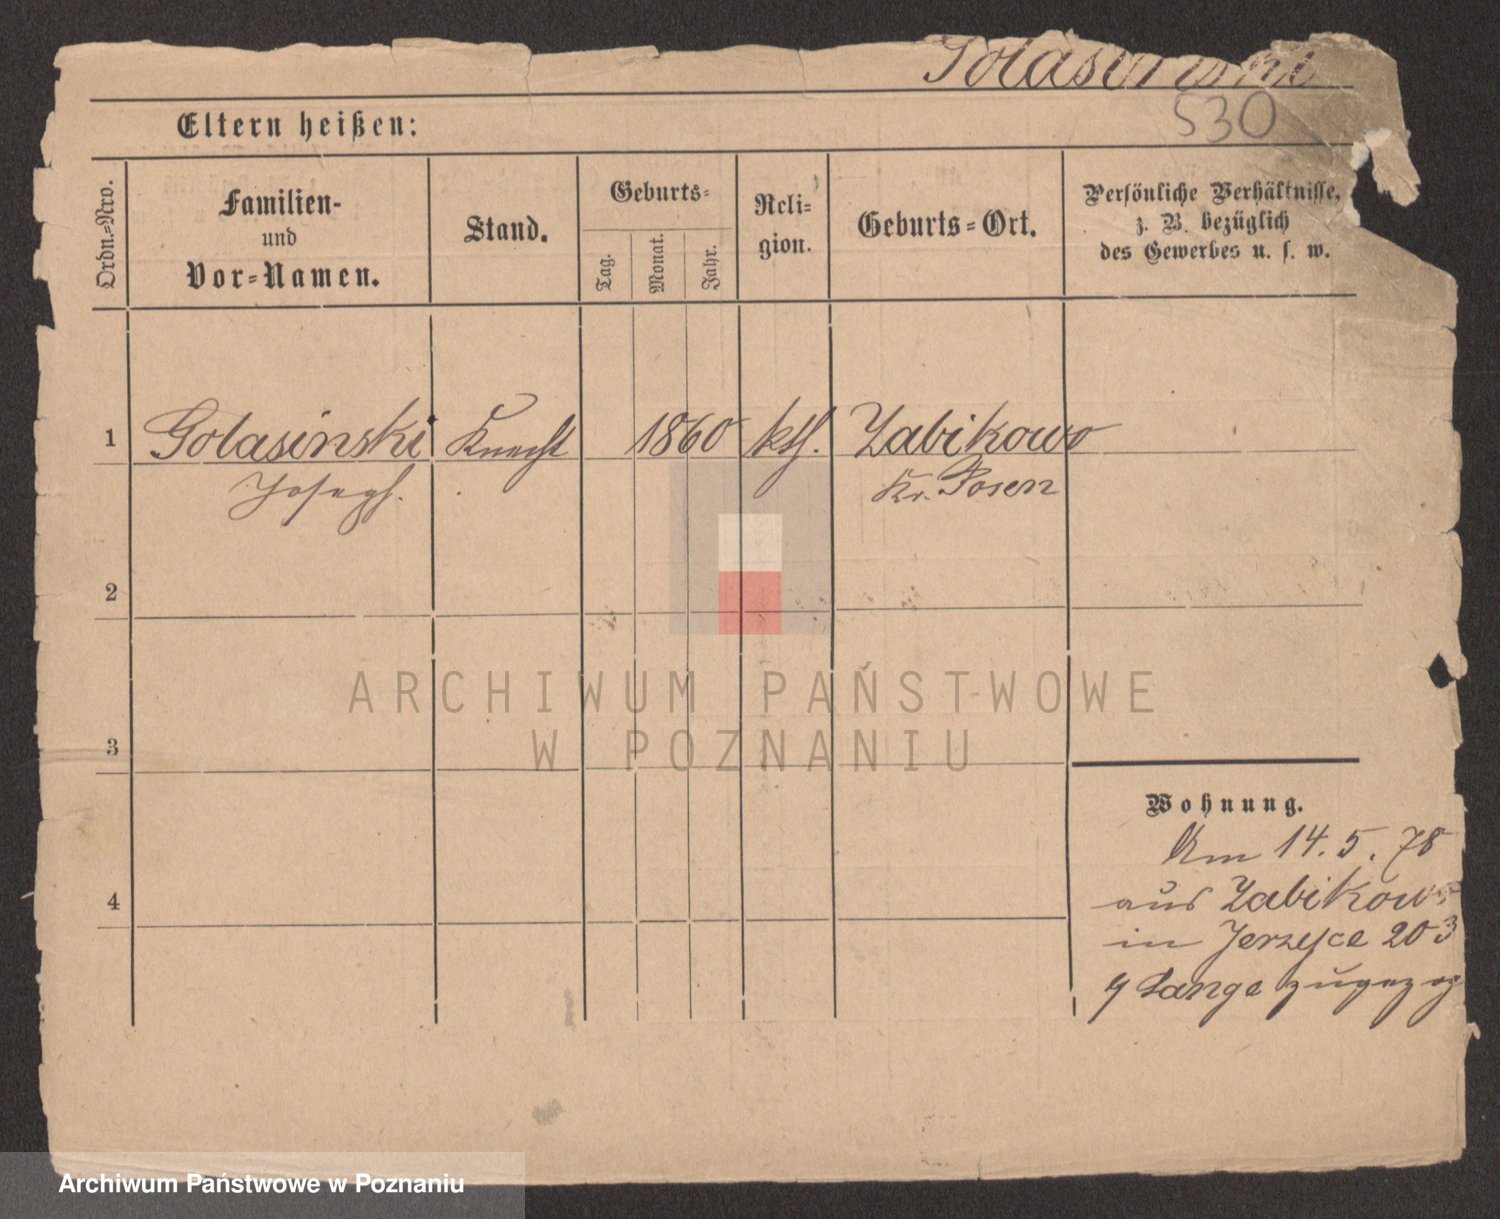 Golasinski
530
Eltern heißen:
Ordn.=Nro.
Familien-
und
Vor=Namen.
Stand.
Geburts=
Tag.
Monat.
Jahr.
Reli=
gion.
Geburts=Ort.
Persönliche Verhältnisse,
z. B. bezüglich
des Gewerbes u. s. w.
1 Golasinski Knecht 1860 kth. Zabikowo
Joseph. Kr. Posen
2
3
4
ARCHIWUM PAŃSTWOWE
W POZNANIU
Wohnung.
Am 14. 5. 78
aus Zabikowo
in Jerzyce 203
Lange zugezog
Archiwum Państwowe w Poznaniu